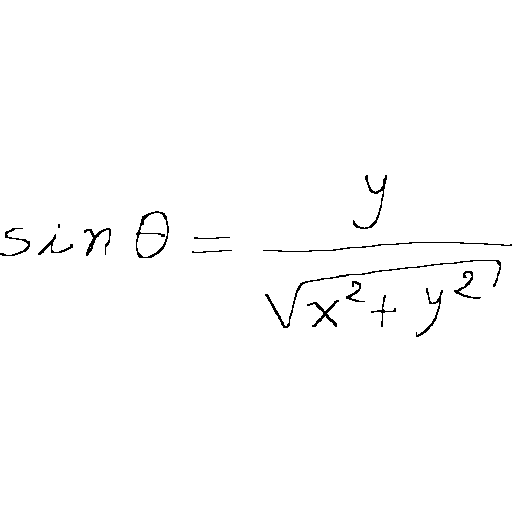 sin θ = y / √(x² + y²)